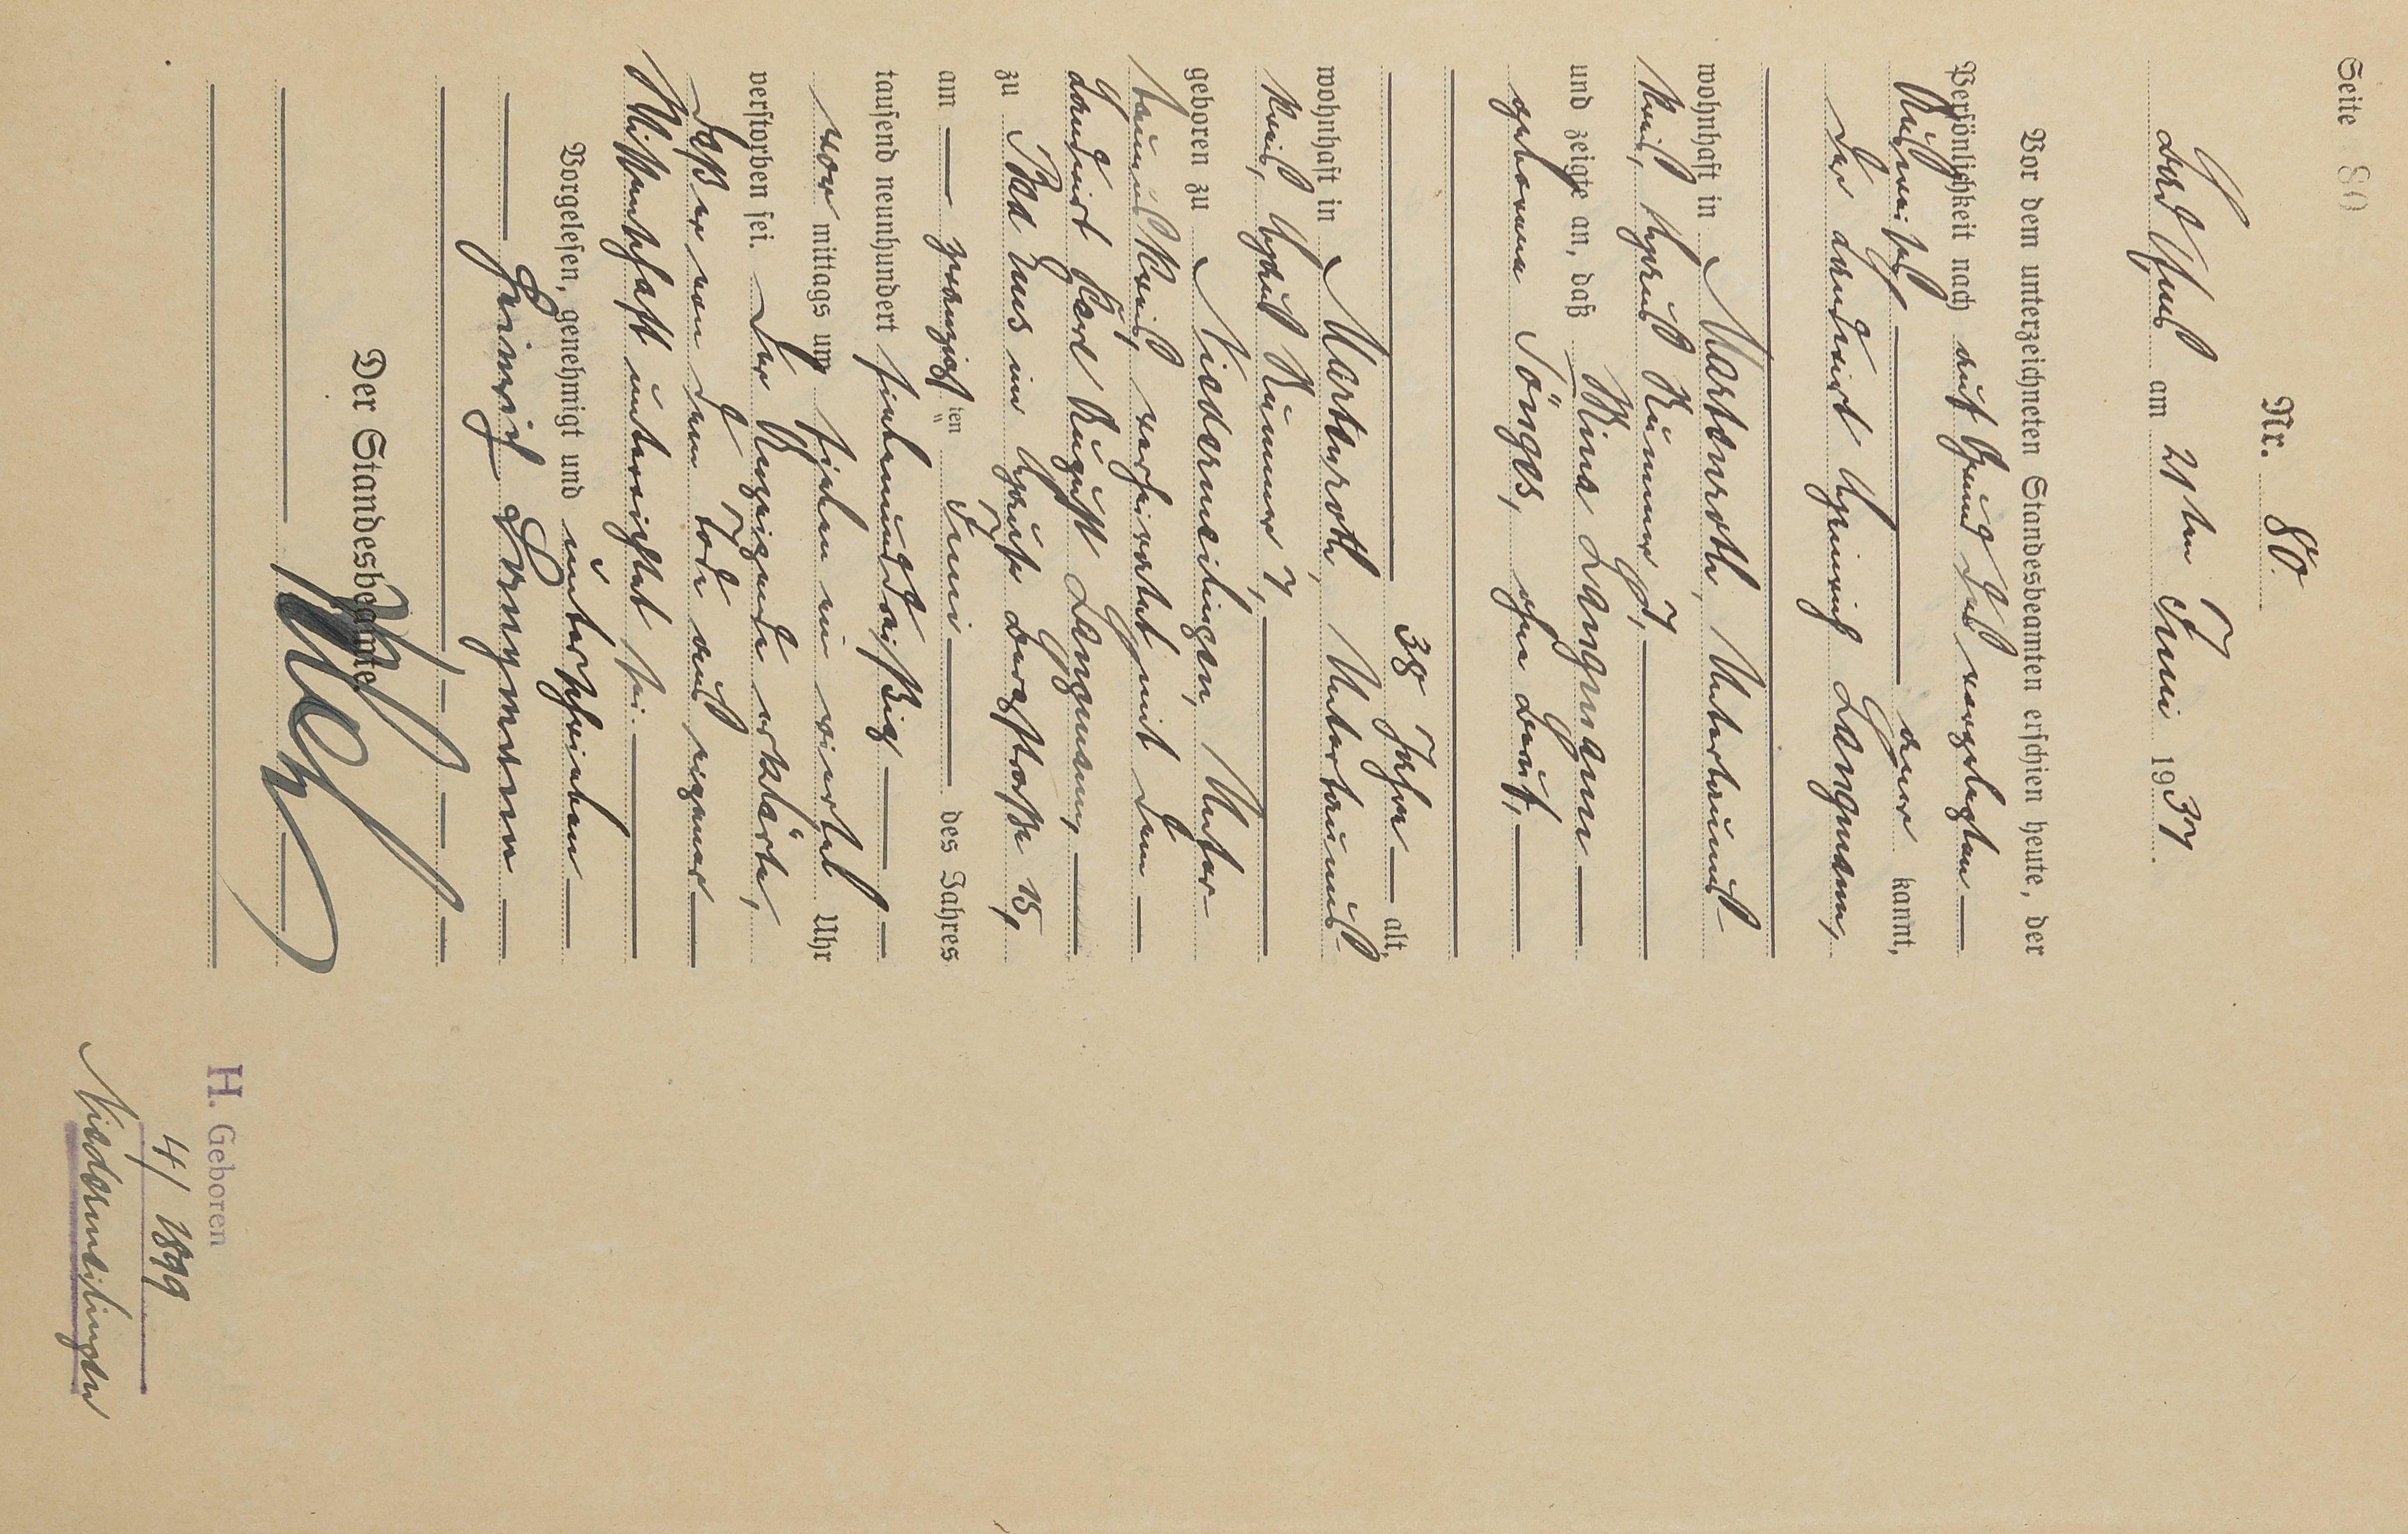 Seite 80
Nr. 80.
Bad Ems am 21ten Juni 1937.
Vor dem unterzeichneten Standesbeamten erschien heute, der
Persönlichkeit nach auf Grund des vorgelegten
Ausweises aner kannt,
der Landwirt Heinrich Langmann,
wohnhaft in Martenroth, Untertaunus-
kreis, Haus Nummer 7,
und zeigte an, daß Mina Langmann
geborene Tönges, ohne Beruf,
38 Jahre alt,
wohnhaft in Martenroth, Untertaunus-
kreis, Haus Nummer 7,
geboren zu Niedermeilingen, Unter-
taunuskreis, verheiratet mit dem
Landwirt Karl August Langmann,
zu Bad Ems im Hause Bergstraße 15,
am zwanzigsten Juni des Jahres
tausend neunhundert siebenunddreißig
vor mittags um sieben ein viertel Uhr
verstorben sei. Der Anzeigende erklärte,
daß er von dem Tode aus eigener
Wissenschaft unterrichtet sei.
Vorgelesen, genehmigt und unterschrieben
Heinrich Langmann
Der Standesbeamte.
H. Geboren
4/1899
Niedermeilingen